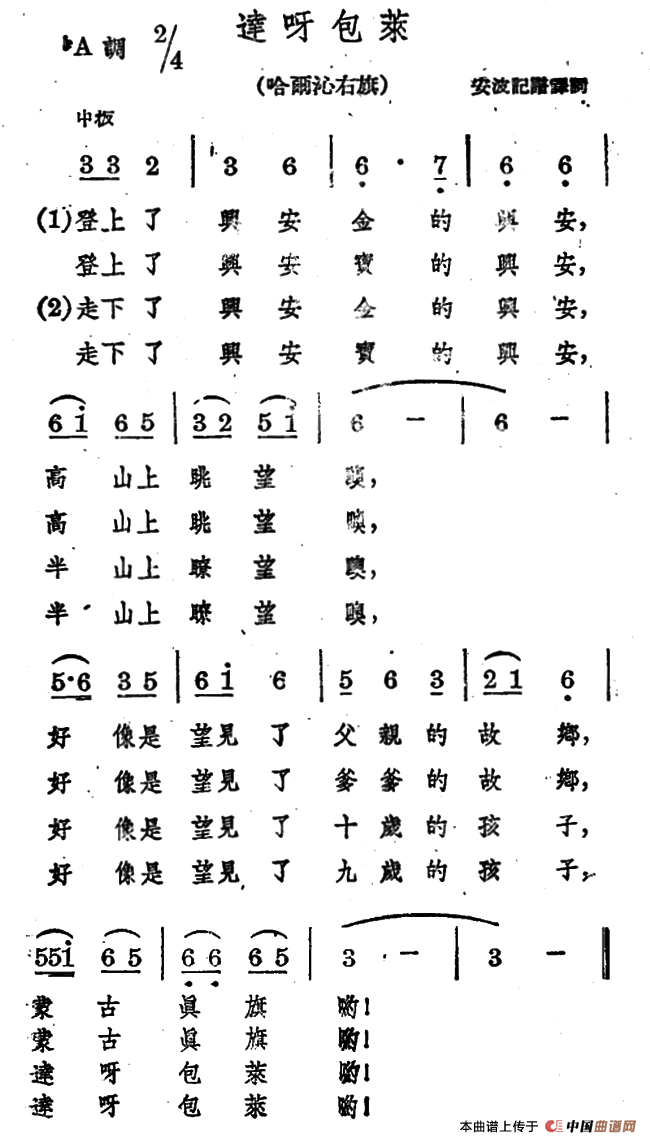 達呀包萊
♭A 調 2/4
(哈爾沁右旗)
安波記譜譯詞
中板
3 3 2 | 3 6 | 6 · 7 | 6 6 |
(1)登上了 興安金的興安,
登上了 興安寶的興安,
(2)走下了 興安金的興安,
走下了 興安寶的興安,
6 i 6 5 | 3 2 5 i | 6 – | 6 – |
高 山上眺望 噢,
高 山上眺望 噢,
半 山上瞭望 噢,
半 山上瞭望 噢,
5·6 3 5 | 6 i 6 | 5 6 3 | 2 1 6 |
好 像是望見了父親的故鄉,
好 像是望見了爹爹的故鄉,
好 像是望見了十歲的孩子,
好 像是望見了九歲的孩子,
5 5 i 6 5 | 6 6 6 5 | 3 – | 3 – ‖
蒙古真旗喲!
蒙古真旗喲!
達呀包萊喲!
達呀包萊喲!
本曲谱上传于 中国曲谱网